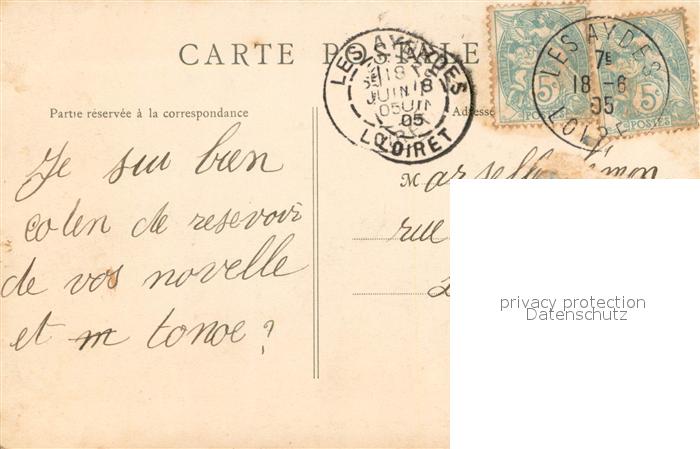 CARTE POSTALE
LES AYDES
18
JUIN
05
LOIRET
LES AYDES
7E
18-6
05
LOIRET
5c
POSTES
5c
POSTES
Partie réservée à la correspondance
Adresse
Je sui bien
colen de resevoir
de vos novelle
et m tonoe?
M
rue
privacy protection
Datenschutz